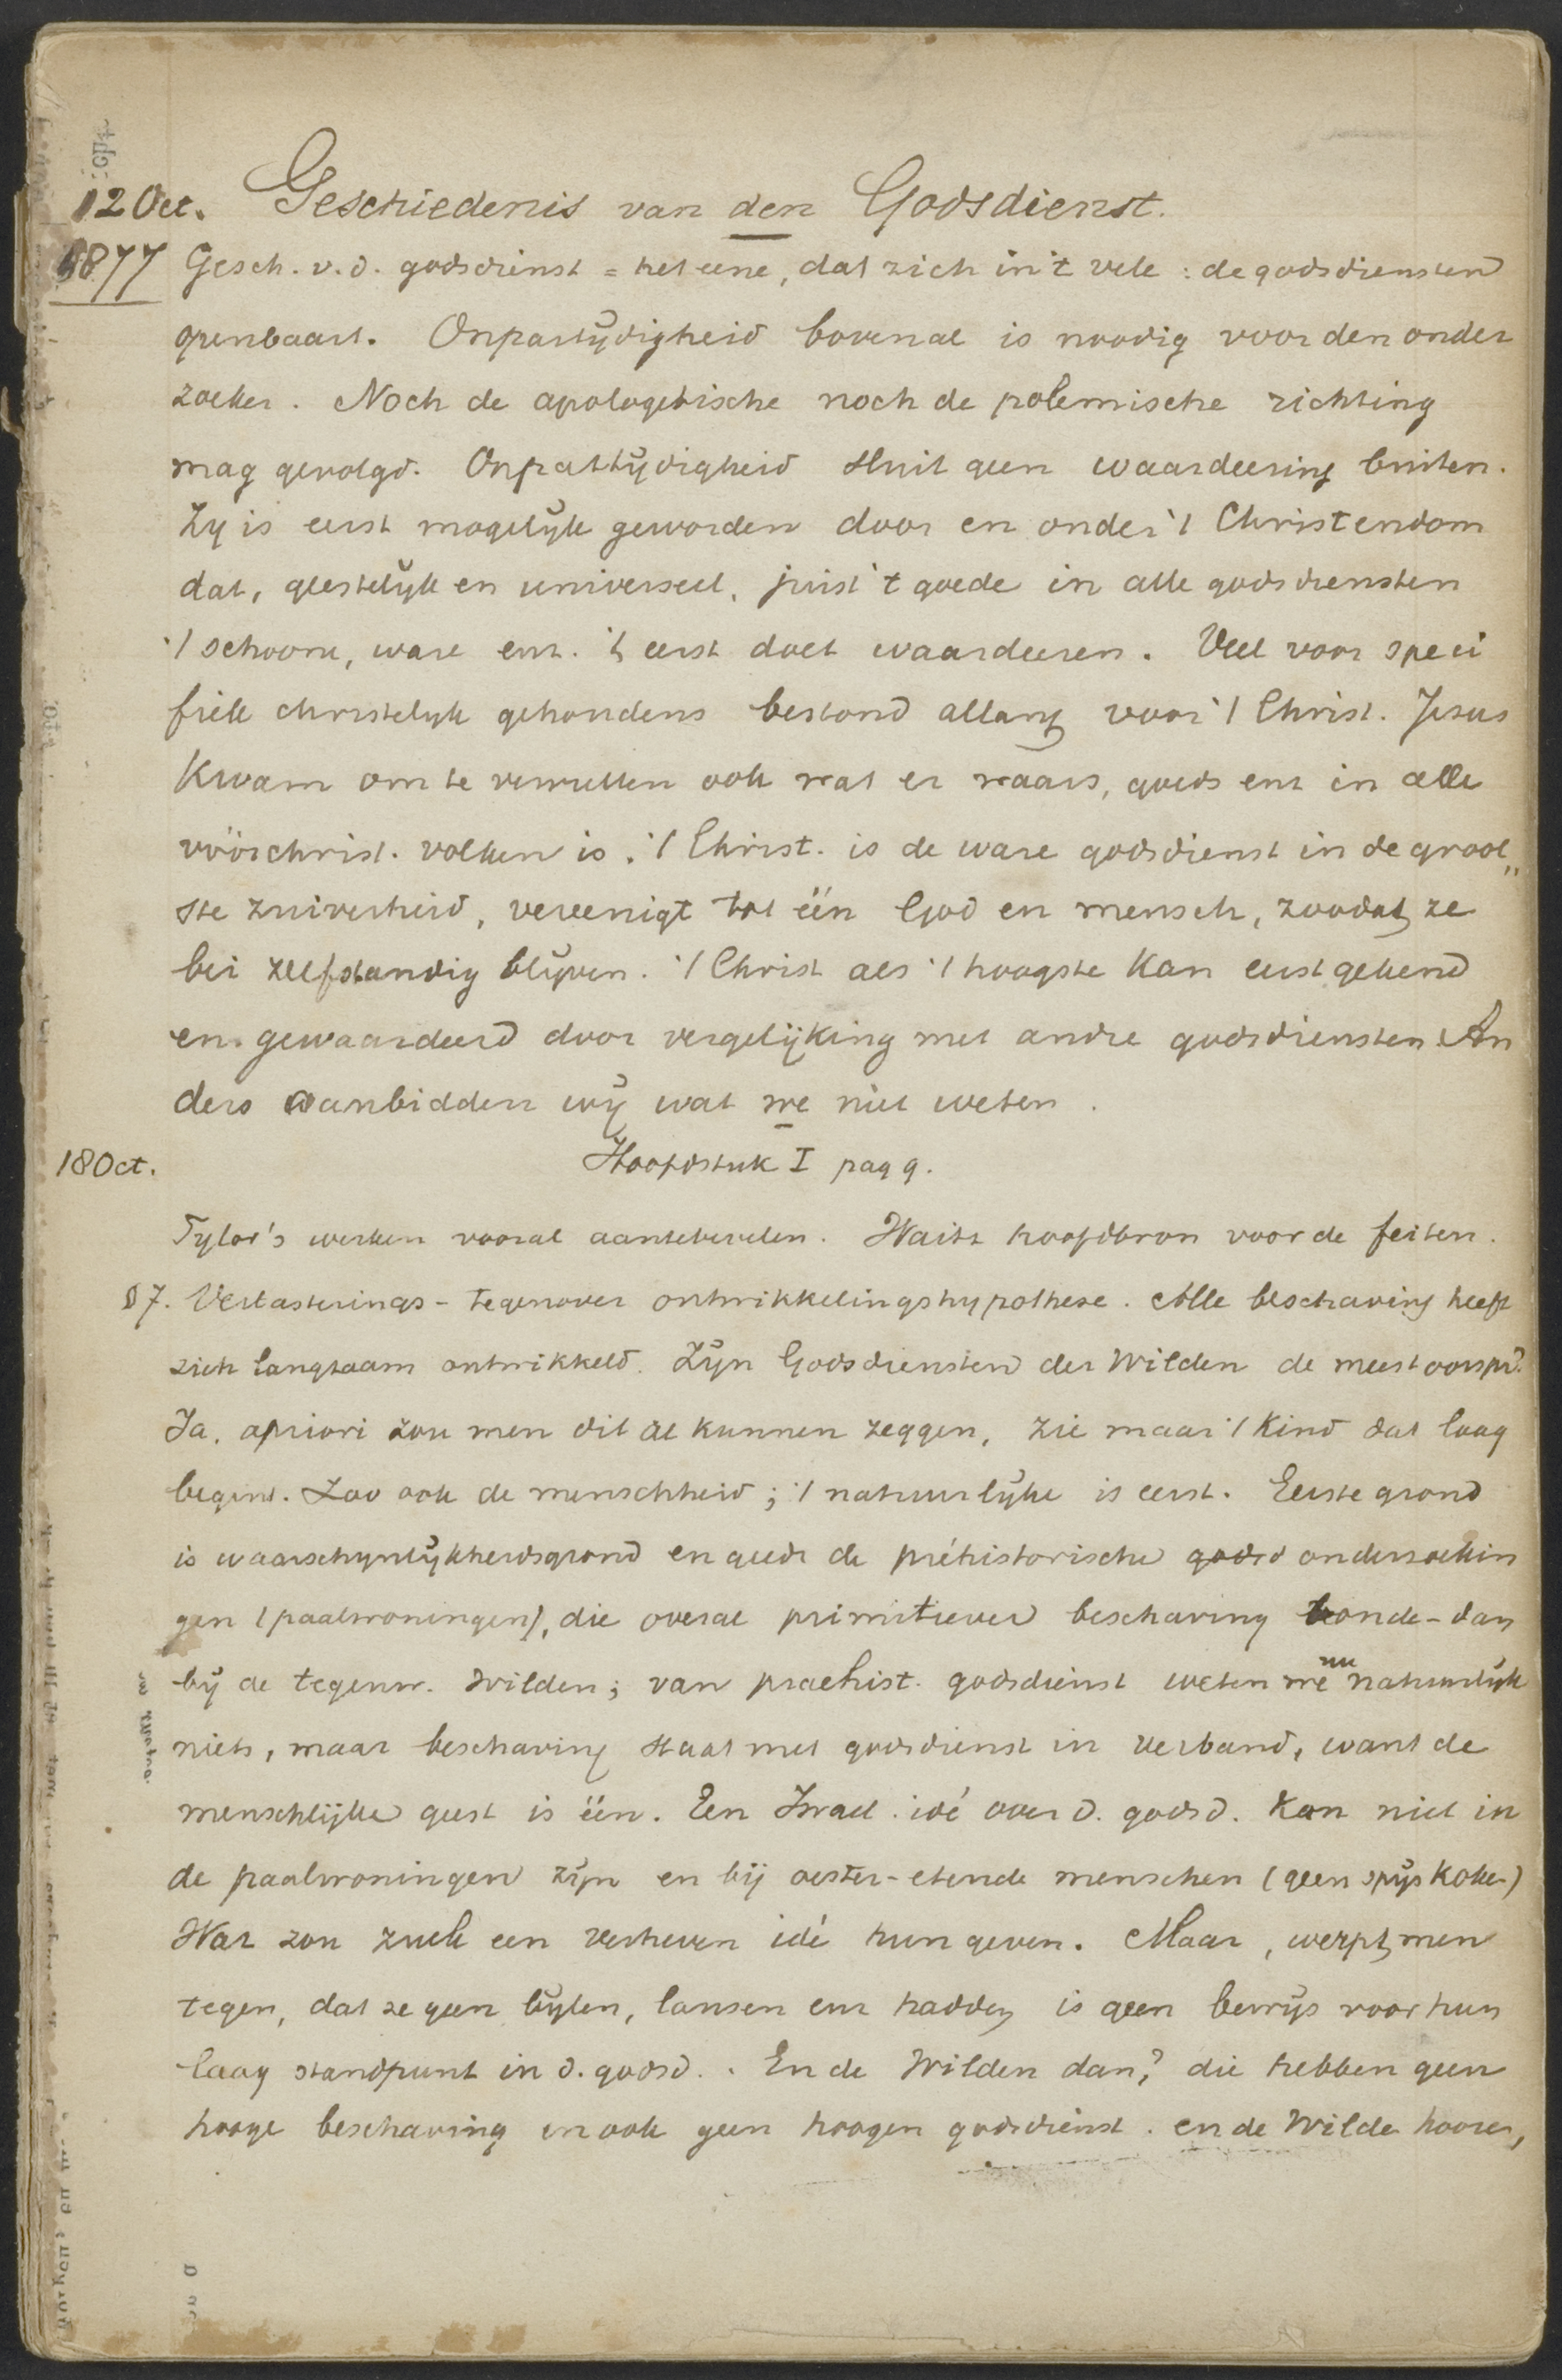 12 Oct. Geschiedenis van den Godsdienst.
1877 Gesch. v. d. godsdienst = het eene, dat zich in 't vele : de godsdiensten
openbaart. Onpartijdigheid bovenal is noodig voor den onder
zoeker. Noch de apologetische noch de polemische richting
mag gevolgd. Onpartijdigheid sluit geen waardeering buiten.
Zy is eerst mogelijk geworden door en onder 't Christendom
dat, geestelijk en universeel, juist 't goede in alle godsdiensten
't schoone, ware enz. 't eerst doet waardeeren. Veel voor speci
fiek christelijk gehoudens bestond allang voor 't Christ. Jesus
kwam om te vervullen ook wat er waars, goeds enz in alle
vóórchrist. volken is. 't Christ. is de ware godsdienst in de groot„
ste zuiverheid, vereenigt tot één God en mensch, zoodat ze
bei zelfstandig blijven. 't Christ als 't hoogste kan eerst gekend
en gewaardeerd door vergelijking met andre godsdiensten. An
ders aanbidden wij wat we niet weten.
18 Oct. Hoofdstuk I pag 9.
Tylor's werken vooral aantebevelen. Waitz hoofdbron voor de feiten.
§ 7. Verbasterings- tegenover ontwikkelingshypothese. Alle beschaving heeft
zich langzaam ontwikkeld. Zijn Godsdiensten der Wilden de meest oorspr?
Ja. apriori zou men dit al kunnen zeggen, zie maar 't kind dat laag
begint. Zoo ook de menschheid; 't natuurlijke is eerst. Eerste grond
is waarschynlijkheidsgrond en de préhistorische godsd onderzoekin
gen (paalwoningen), die overal primitiever beschaving toonde - dan
bij de tegenw. Wilden; van praehist. godsdienst weten we nu natuurlijk
niets, maar beschaving staat met godsdienst in verband, want de
menschlijke geest is één. Een Israel. idé over d. godsd. kan niet in
de paalwoningen zijn en bij oester-etende menschen (geen spijskoken)
Wat zou zulk een verheven idé hun geven. Maar, werpt men
tegen, dat ze geen bijlen, lansen enz hadden is geen bewijs voor hun
laag standpunt in d. godsd.. En de Wilden dan? die hebben geen
hooge beschaving en ook geen hoogen godsdienst. en de Wilde